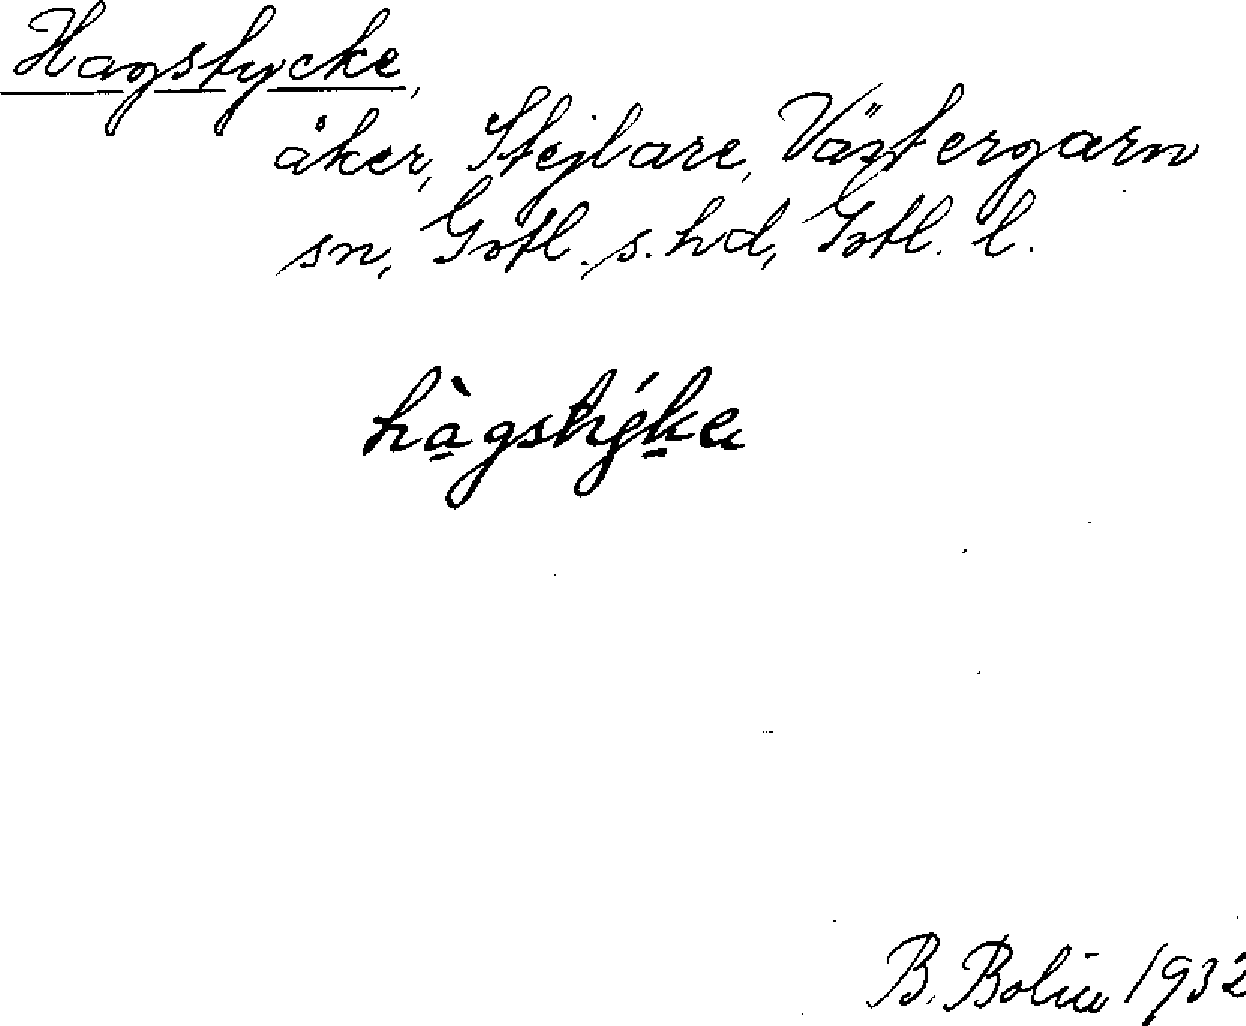 Hagstycke,
åker, Stejlare, Västergarn
sn, Gotl. s. hd, Gotl. l.
hàgstýka
B. Bolin 1932